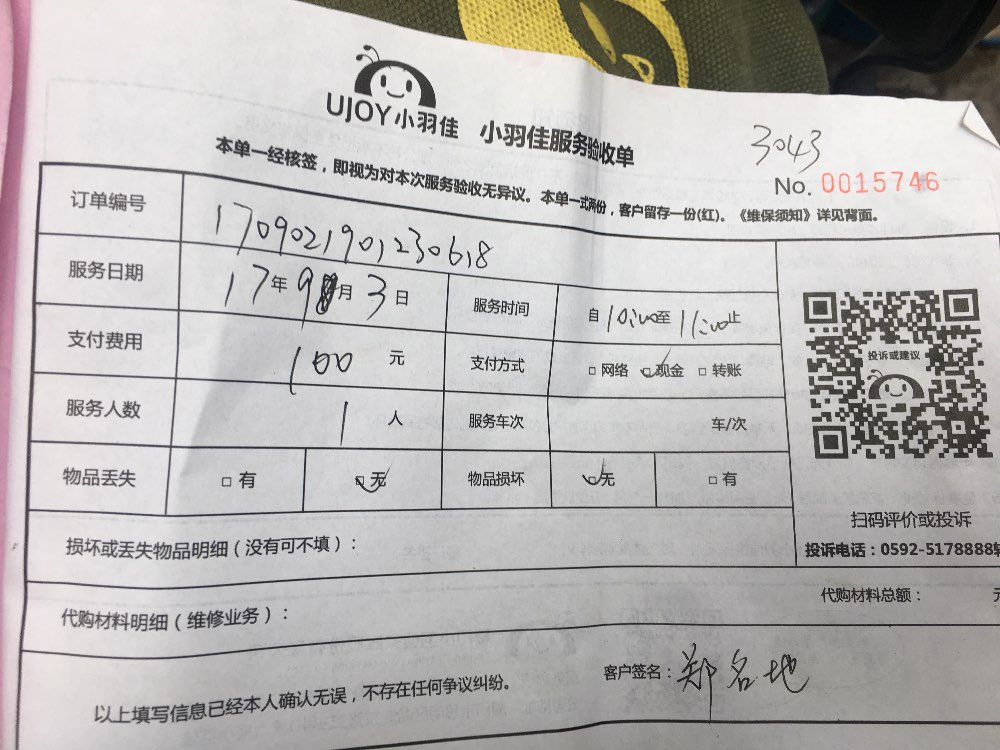 UJOY小羽佳 小羽佳服务验收单
3043
No. 0015746
本单一经核签，即视为对本次服务验收无异议。本单一式两份，客户留存一份(红)。《维保须知》详见背面。
订单编号 1709021901230618
服务日期 17年 9月 3日 服务时间 自 10:00至 11:00止
支付费用 100 元 支付方式 □ 网络 □ 现金 □ 转账
服务人数 1 人 服务车次 车/次
物品丢失 □ 有 □ 无 物品损坏 □ 无 □ 有
投诉或建议
扫码评价或投诉
投诉电话：0592-5178888转
损坏或丢失物品明细（没有可不填）：
代购材料明细（维修业务）：
代购材料总额： 元
以上填写信息已经本人确认无误，不存在任何争议纠纷。
客户签名：郑名地